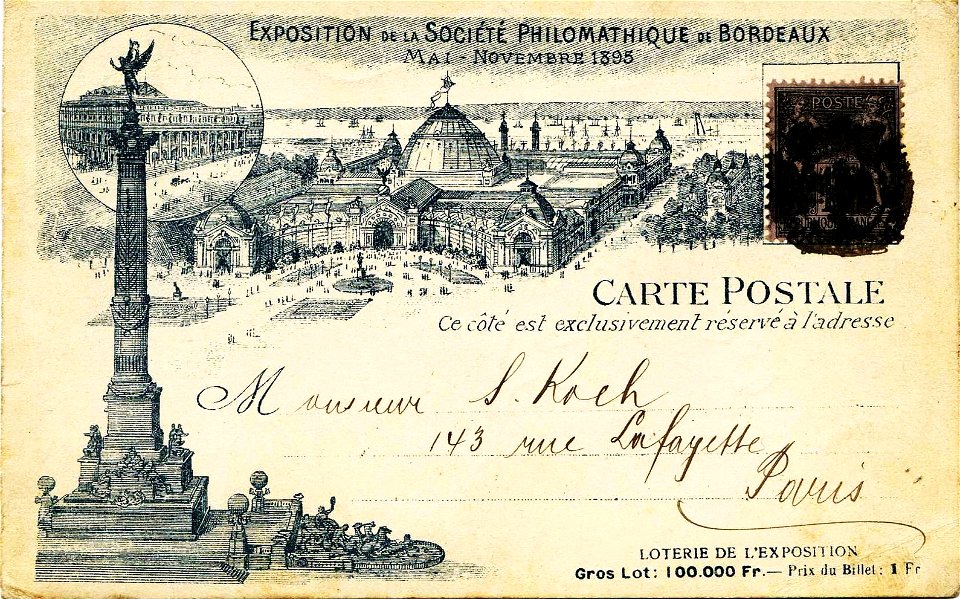 EXPOSITION DE LA SOCIÉTÉ PHILOMATHIQUE DE BORDEAUX
MAI - NOVEMBRE 1895
POSTE
CARTE POSTALE
Ce côté est exclusivement réservé à l'adresse
Monsieur S. Koch
143 rue Lafayette
Paris
LOTERIE DE L'EXPOSITION
Gros Lot: 100.000 Fr. — Prix du Billet: 1 Fr